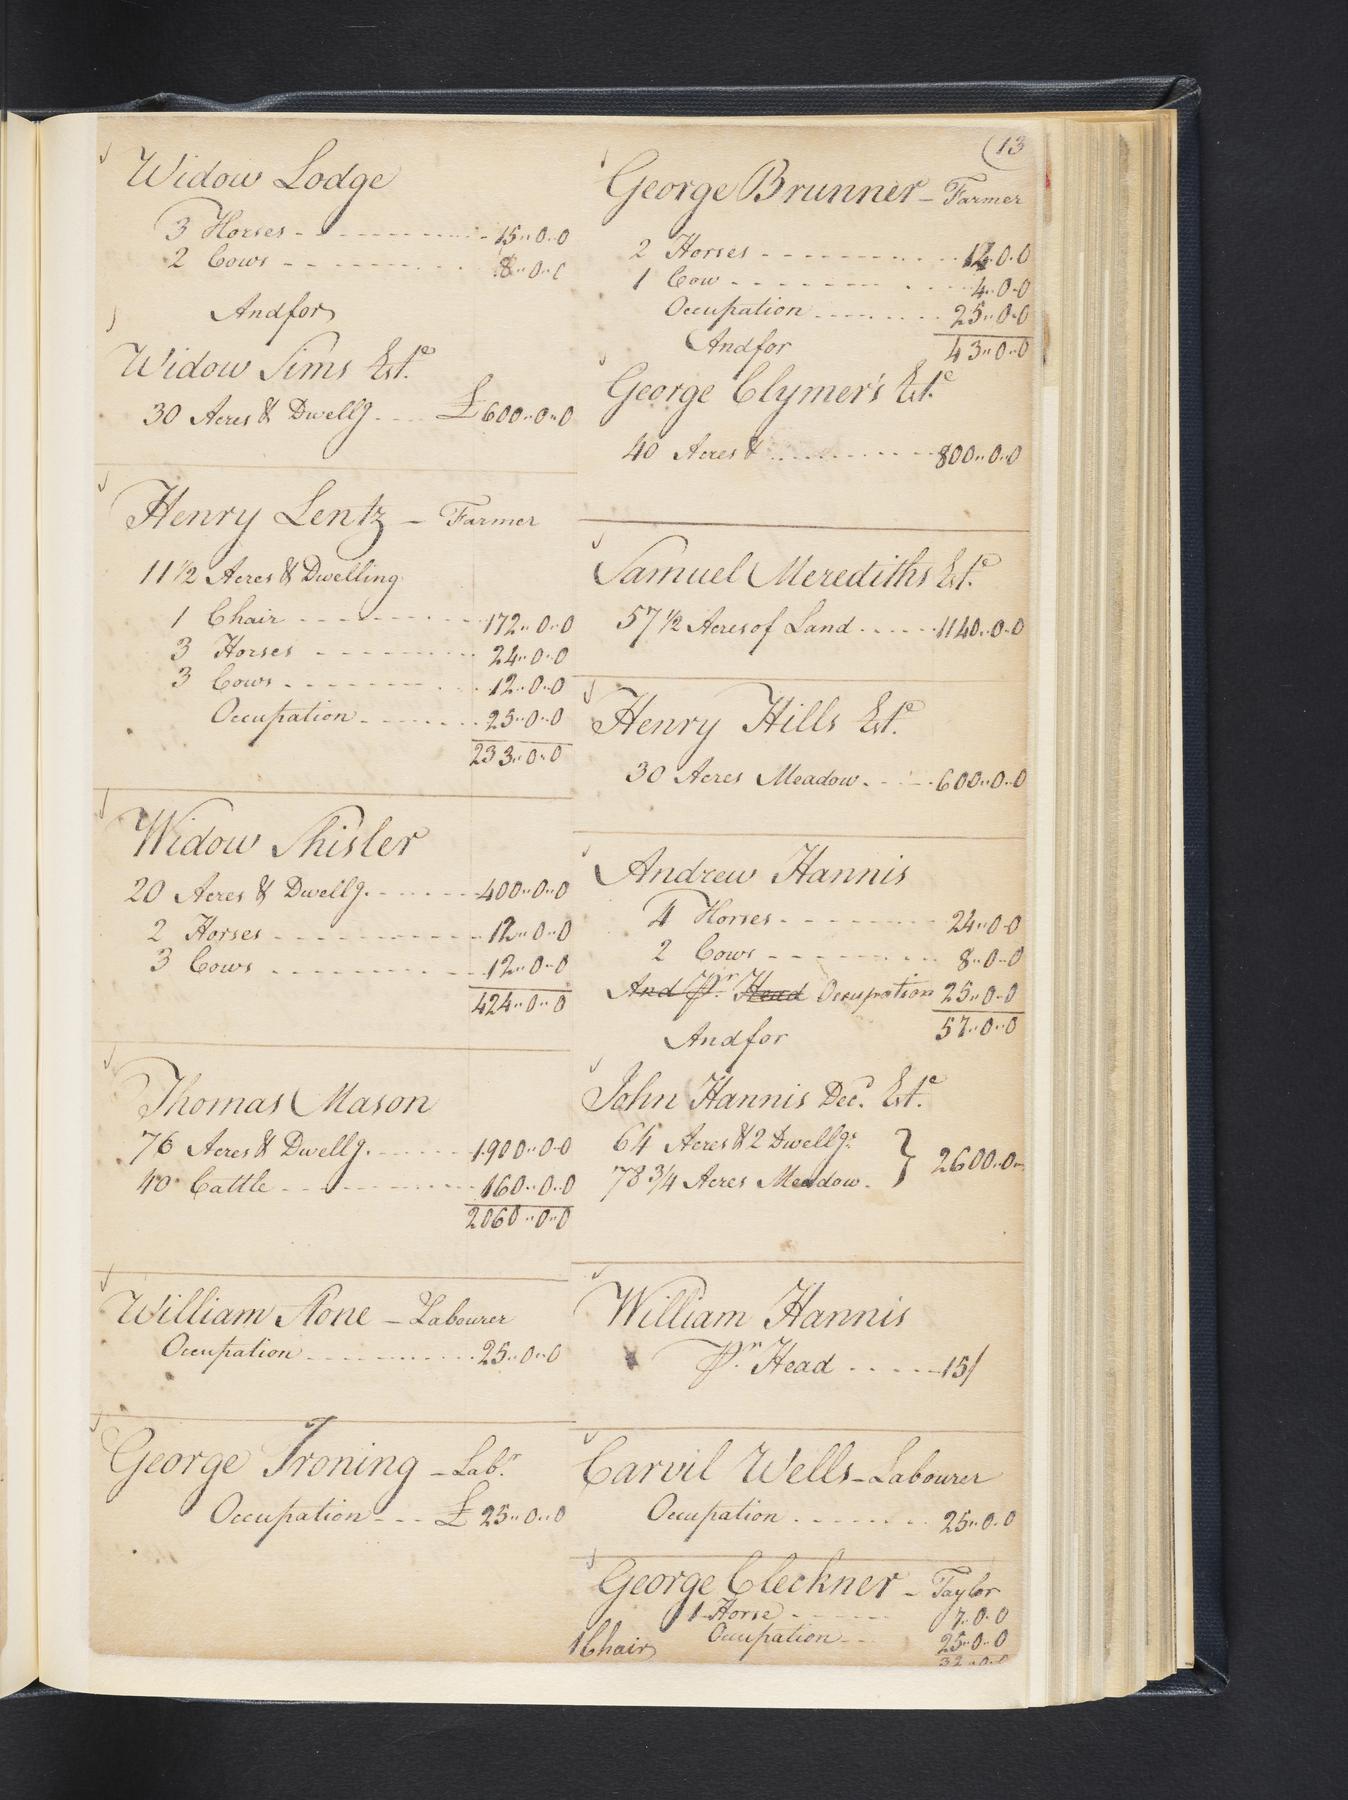 (13
Widow Lodge
3 Horses - - - - - - - - 15..0..0
2 Cows - - - - - - 8..0..0
And for
Widow Sims Est.e
30 Acres & Dwellg. - - £600..0..0
Henry Lentz - Farmer
11 1/2 Acres & Dwelling
1 Chair - - - - - - - 172..0..0
3 Horses - - - - - - 24..0..0
3 Cows - - - - - - - 12..0..0
Occupation - - - - - 25..0..0
233..0..0
Widow Shisler
20 Acres & Dwellg. - - - - 400..0..0
2 Horses - - - - - - - - 12..0..0
3 Cows - - - - - - - - 12..0..0
424..0..0
Thomas Mason
76 Acres & Dwellg. - - - - 1900..0..0
40 Cattle - - - - - - - 160..0..0
2060..0..0
William Stone - Labourer
Occupation - - - - - - - 25..0..0
George Troning - Lab.r
Occupation - - - £ 25..0..0
George Brunner - Farmer
2 Horses - - - - - - - - 14..0..0
1 Cow - - - - - - - - 4..0..0
Occupation - - - - - - 25..0..0
And for 43..0..0
George Clymer's Est.e
40 Acres & - - - - - - - 800..0..0
Samuel Merediths Est.e
57 1/2 Acres of Land - - - - 1140..0..0
Henry Hills Est.e
30 Acres Meadow - - - 600..0..0
Andrew Hannis
4 Horses - - - - - - 24..0..0
2 Cows - - - - - - - 8..0..0
And Pr. Head Occupation 25..0..0
And for 57..0..0
John Hannis Dec.d Est.e
64 Acres & 2 Dwellgs. } 2600..0..
78 3/4 Acres Meadow -
William Hannis
Pr. Head - - - - - 15/
Carvil Wells - Labourer
Occupation - - - - - - 25..0..0
George Cleckner - Taylor
1 Horse - - - - - 7..0..0
1 Chair Occupation - - 25..0..0
32..0..0